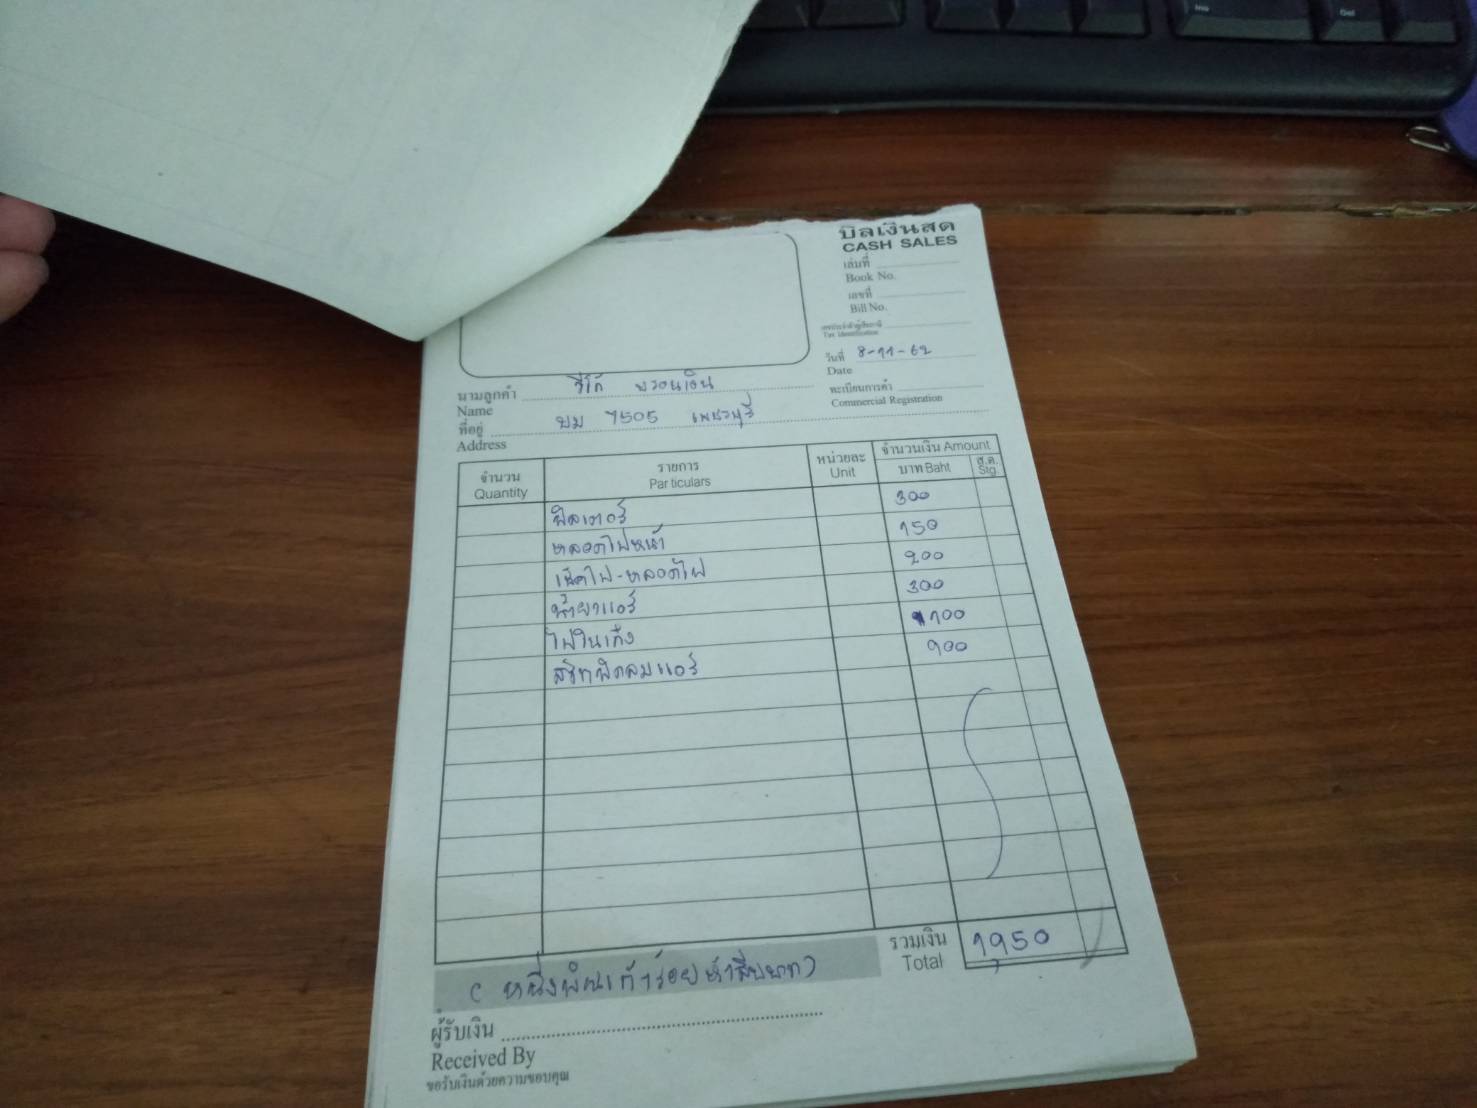 Ins
Del
บิลเงินสด
CASH SALES
เล่มที่
Book No.
เลขที่
Bill No.
เลขประจำตัวผู้เสียภาษี
Tax Identification
วันที่ 8-11-62
Date
ทะเบียนการค้า
Commercial Registration
นามลูกค้า วีโก้
Name
ที่อยู่ บม 7505 เพชรบุรี
Address
จำนวน รายการ หน่วยละ จำนวนเงิน Amount
Quantity Particulars Unit บาท Baht ส.ต. Stg.
ฟิลเตอร์ 300
หลอดไฟหน้า 150
เช็คไฟ-หลอดไฟ 200
น้ำยาแอร์ 300
ไฟในเก๋ง 100
สวิทพัดลมแอร์ 900
รวมเงิน 1,950
Total
(หนึ่งพันเก้าร้อยห้าสิบบาท)
ผู้รับเงิน
Received By
ขอรับเงินด้วยความขอบคุณ